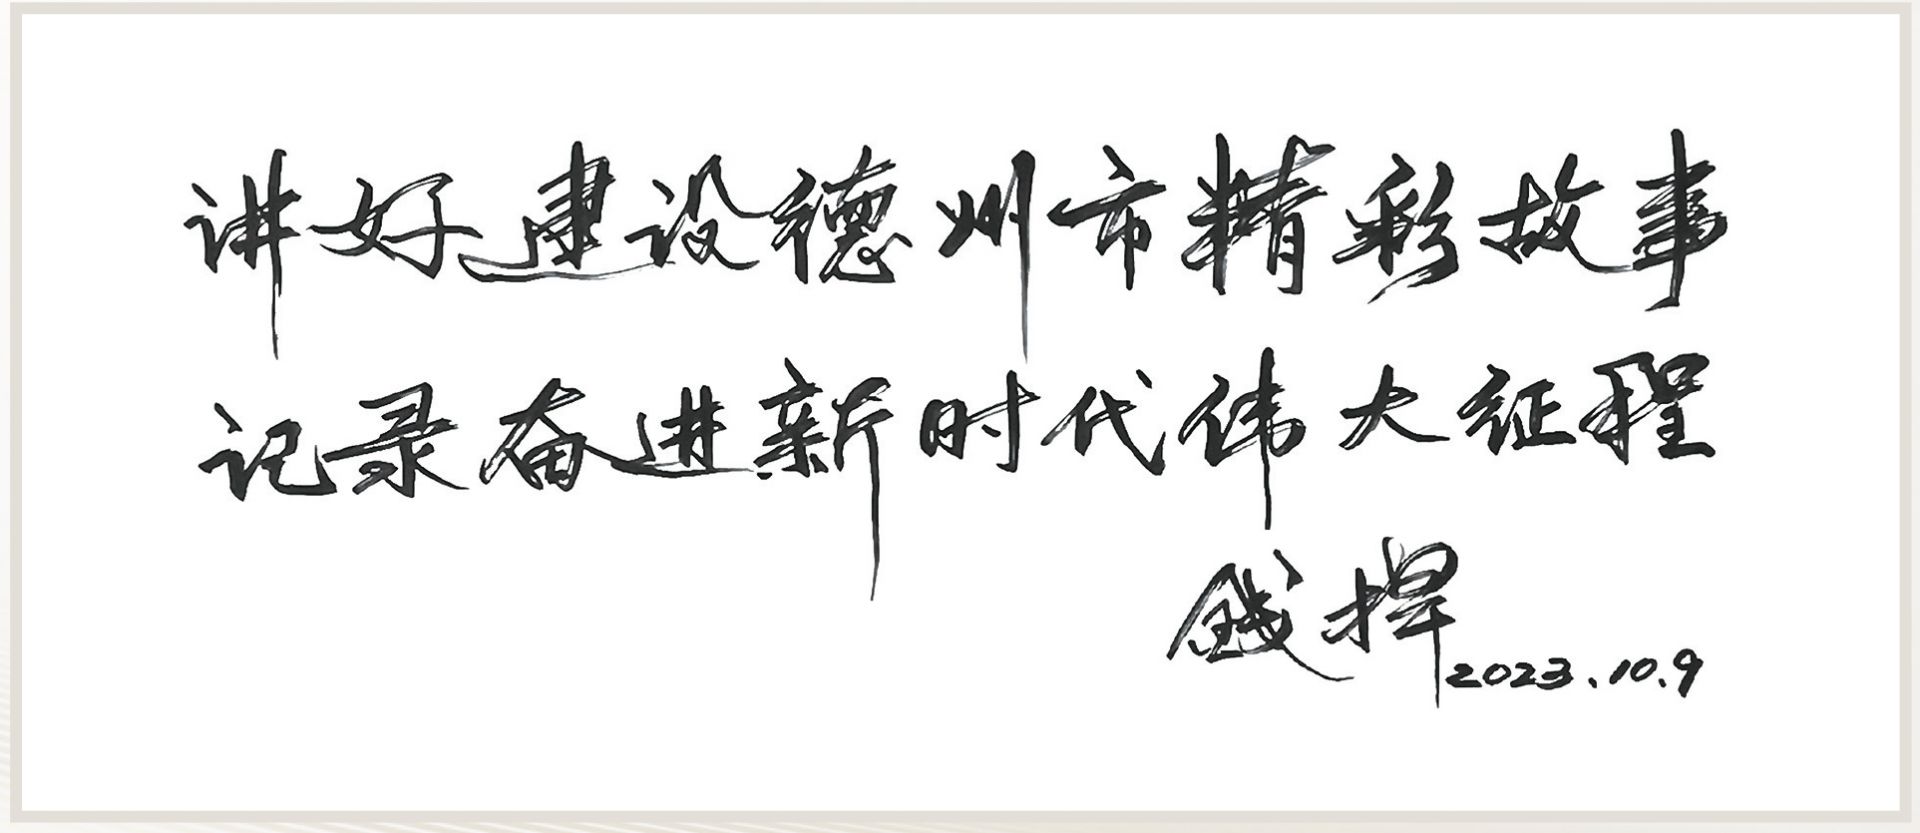 讲好建设德州市精彩故事
记录奋进新时代伟大征程
钱捍
2023.10.9